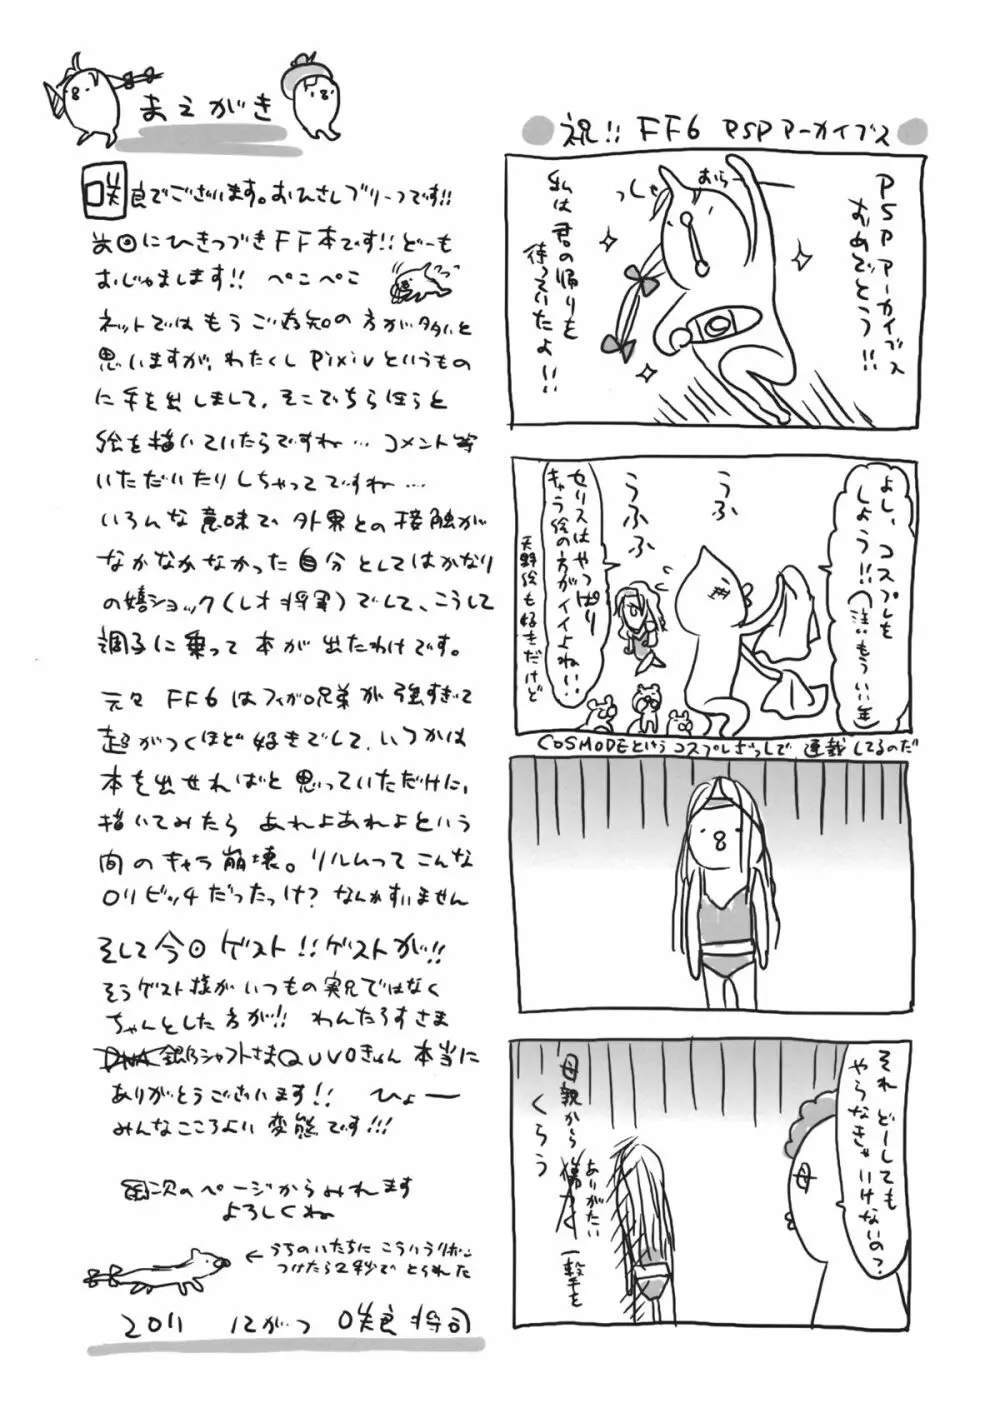 まえがき
咲良でございます。おひさしブリーフです!!
前回にひきつづきFF本です!!どーも
おじゃまします!! ぺこぺこ
ネットではもうご存知の方が多いと
思いますが、わたくしPixivというもの
に手を出しまして、そこでちらほらと
絵を描いていたらですね… コメント等
いただいたりしちゃってですね…
いろんな意味で外界との接触が
なかなかなかった自分としてはかなり
の嬉ショック(レオ将軍)でして、こうして
調子に乗って本が出たわけです。
元々FF6はフィガロ兄弟が強すぎて
超がつくほど好きでして、いつかは
本を出せればと思っていただけに、
描いてみたらあれよあれよという
間のキャラ崩壊。リルムってこんな
ロリビッチだったっけ?なんかすいません
そして今回ゲスト!!ゲストが!!
そうゲスト様がいつもの実兄ではなく
ちゃんとした方が!! わんたろすさま
DNA 銀乃シャフトさまQUVOきゅん本当に
ありがとうございます!! ひょーー
みんなここちよい変態です!!!
次のページからみれます
よろしくね
←うちのいたちにこういうリボン
つけたら2秒でとられた
2011 12がつ 咲良将司
祝!! FF6 PSPアーカイブス
PSPアーカイブス
おめでとう!!
おらー
っしゃ
私は君の帰りを
待っていたよ!!
よし、コスプレを
しよう!!(注:もういい年
うふ
うふふふ
セリスはやっぱり
キャラ絵の方がイイよね!!
天野絵も好きだけど
COSMODEというコスプレざっしで連載してるのだ
それ どーしても
やらなきゃいけないの?
母親から
ありがたい
一撃を
くらう